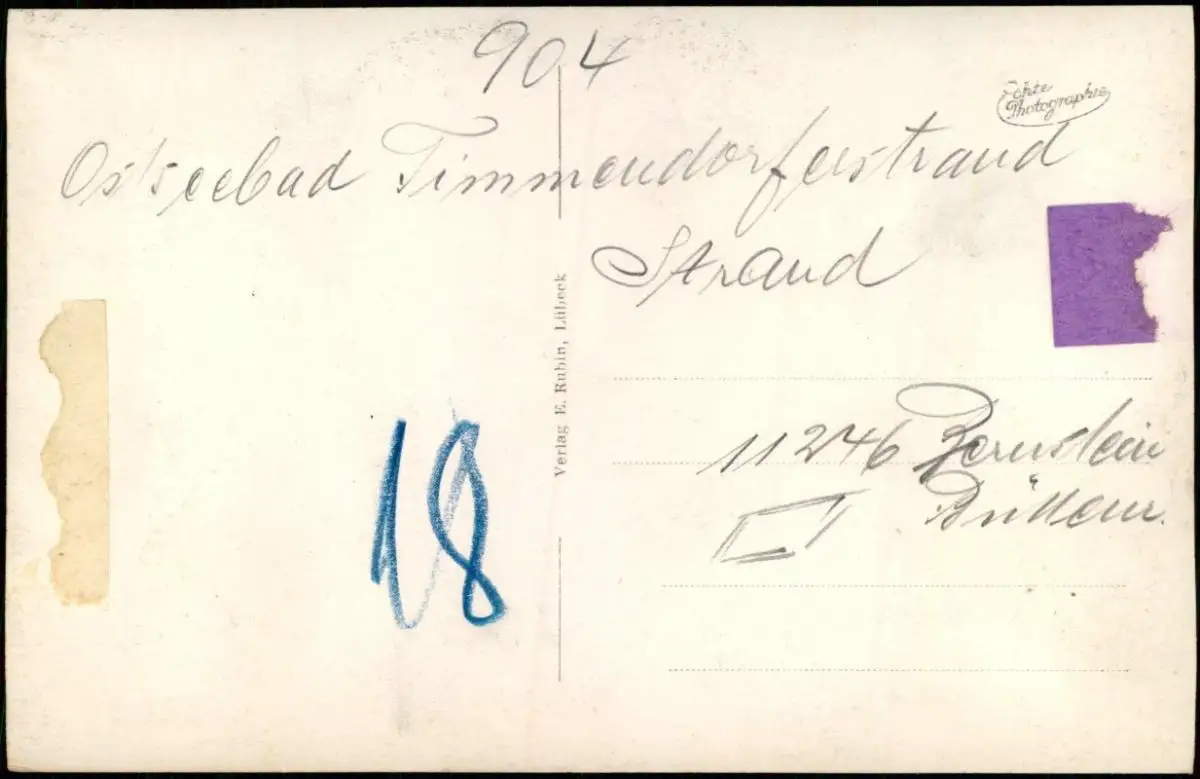 904
Echte
Photographie
Ostseebad Timmendorferstrand
Strand
Verlag E. Rubin, Lübeck
11246 Bernstein
18